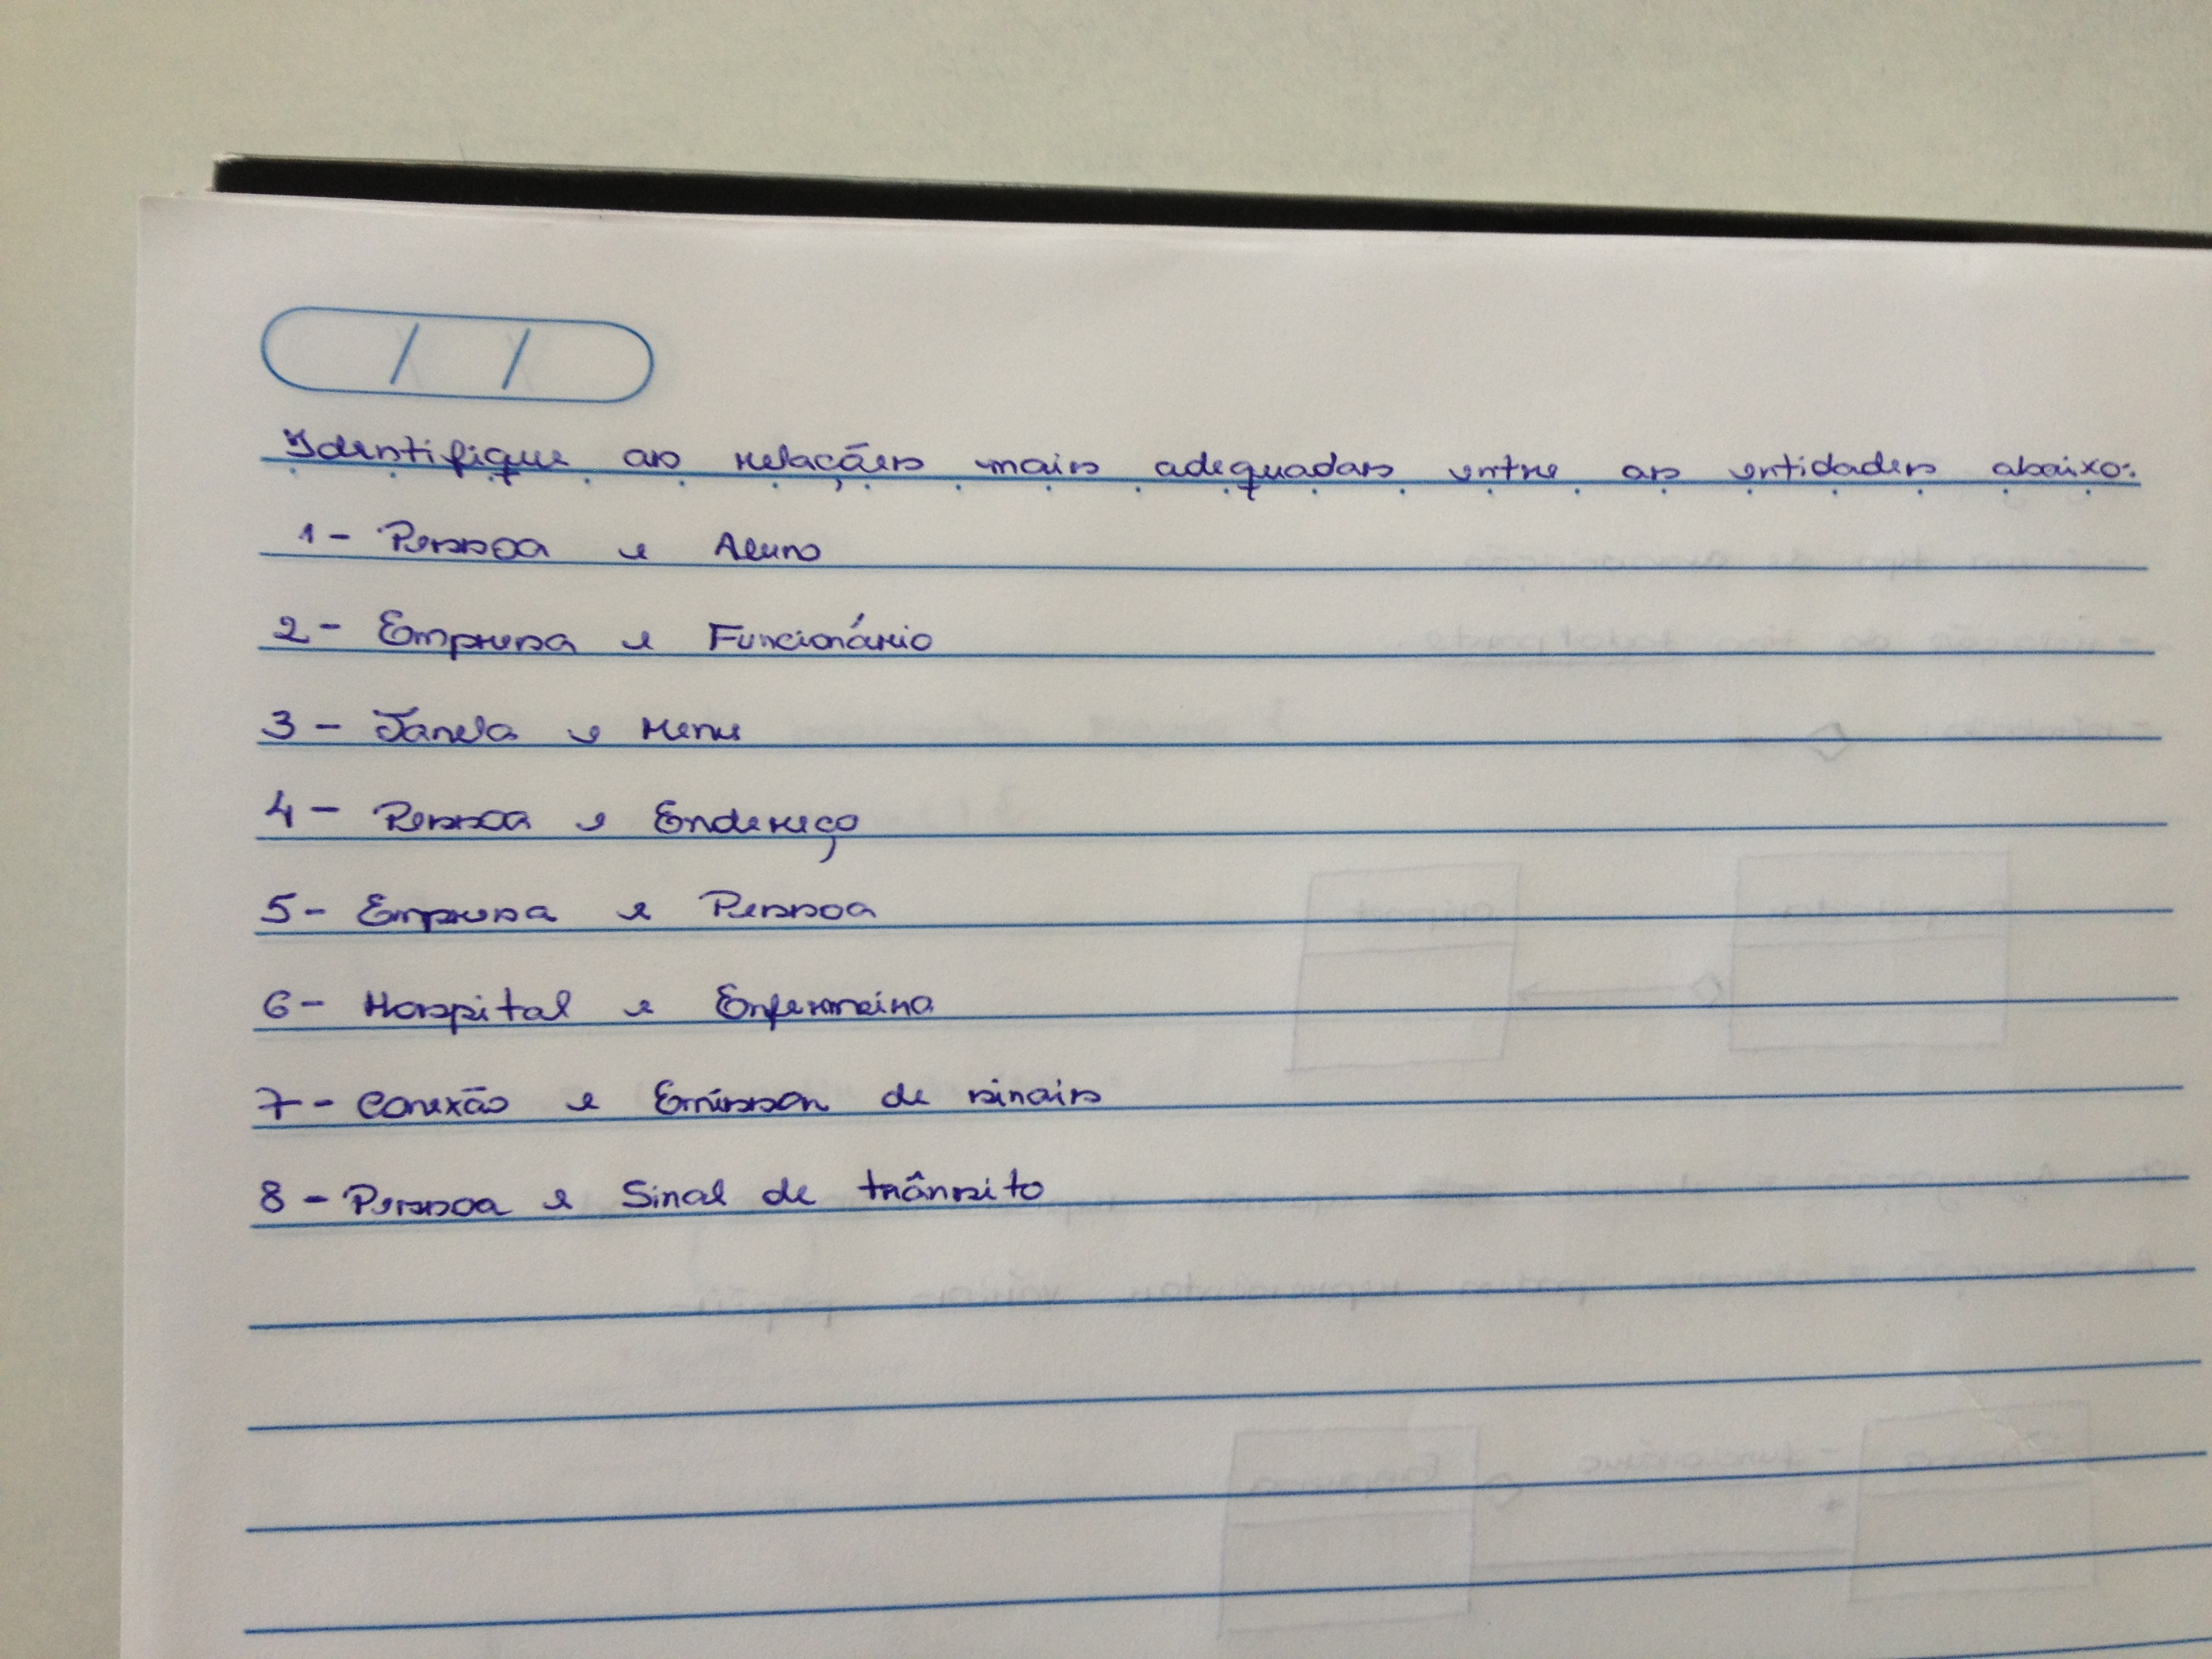 Identifique as relações mais adequadas entre as entidades abaixo:
1- Pessoa e Aluno
2- Empresa e Funcionário
3- Janela e Menu
4- Pessoa e Endereço
5- Empresa e Pessoa
6- Hospital e Enfermeira
7- Conexão e Emissor de sinais
8- Pessoa e Sinal de trânsito